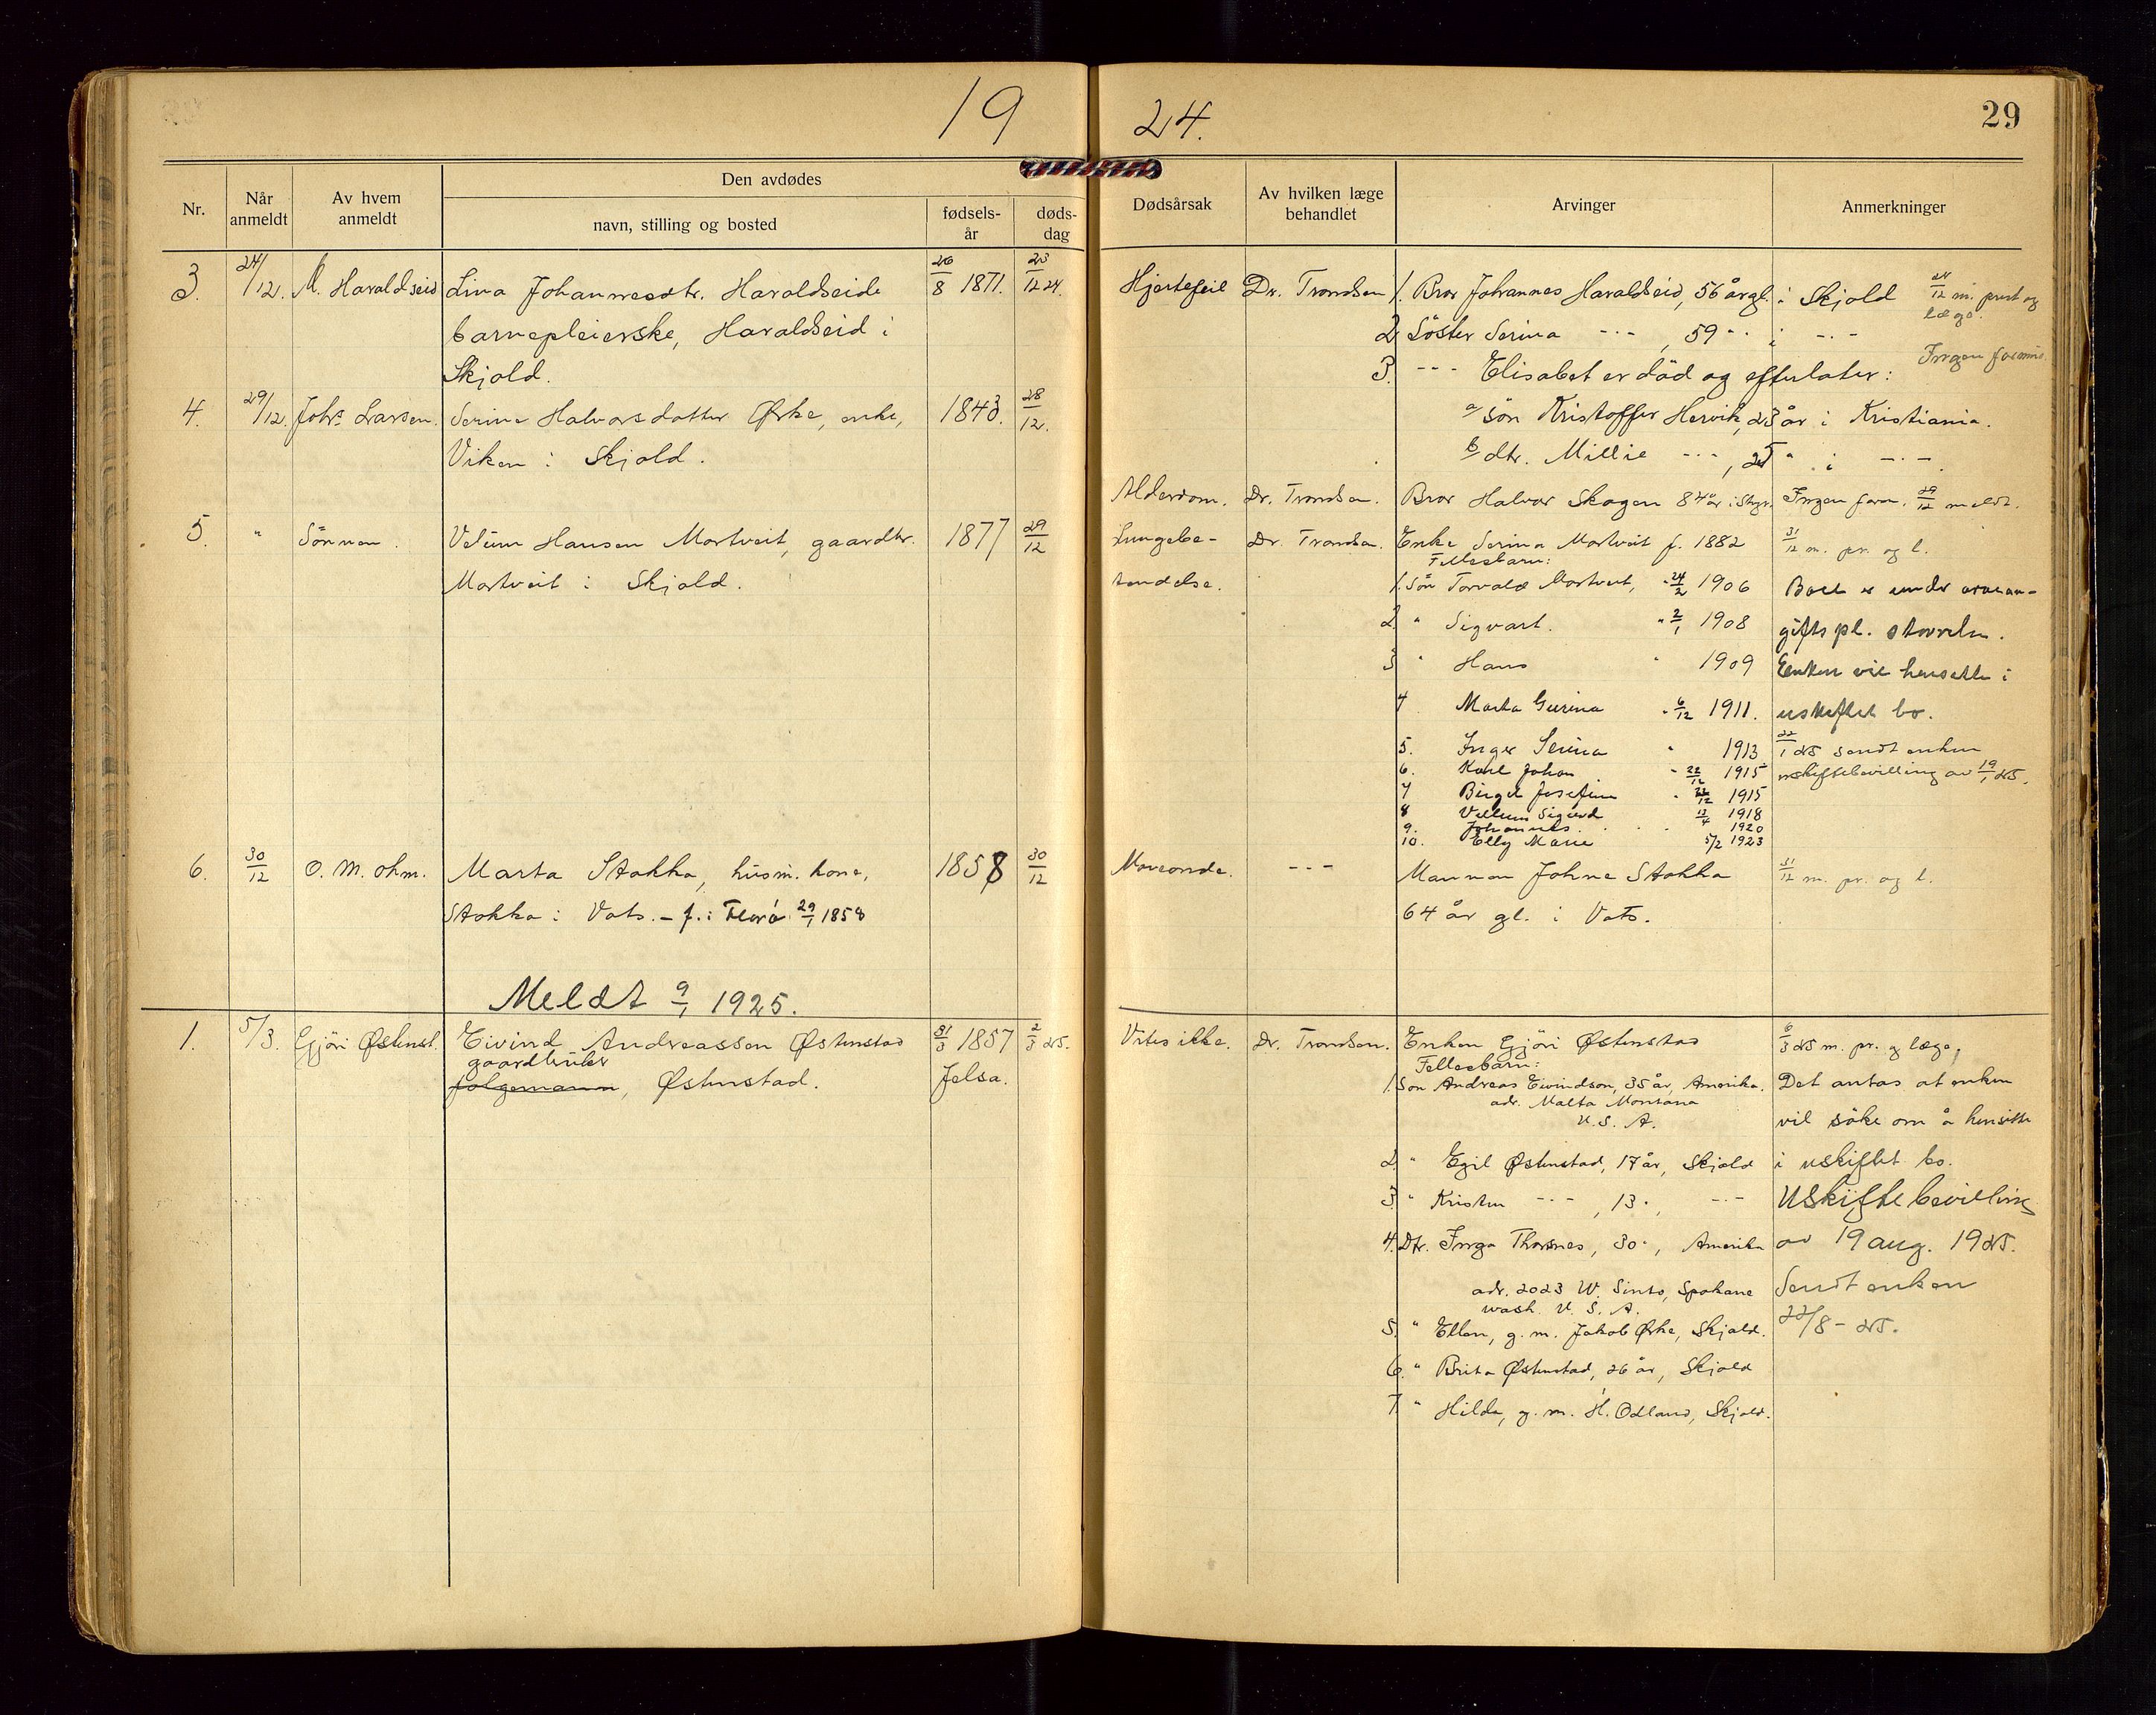 19 24.
29
Nr.
Når anmeldt
Av hvem anmeldt
Den avdødes
navn, stilling og bosted
fødsels-år
døds-dag
Dødsårsak
Av hvilken læge behandlet
Arvinger
Anmerkninger
3. 24/12. M. Haraldseid Lina Johannesdtr. Haraldseide 26/8 1871. 23/12 24. Hjertefeil Dr. Trondsen 1. Bror Johannes Haraldseid, 56 år gl. i Skjold 24/12 m. prest og
barnepleierske, Haraldseid i 2 Söster Serina -"- , 59 " i -"- læge.
Skjold. 3. -"- Elisabet er död og efterlater: Ingen formue.
4. 29/12. Johs Larsen. Serine Halvorsdatter Ørke, enke, 1843. 28/12. a/ sön Kristoffer Hervik, 23 år i Kristiania.
Viken i Skjold. b/ dtr. Millie -"-, 25 " i -"-
Alderdom. Dr. Trondsen. Bror Halvor Skogen 84 år i Ingen form. 29/12 meldt.
5. " Sönnen. Velum Hansen Mortveit, gaardbr. 1877 29/12 Lungebe- Dr. Trondsen. Enke Serina Mortveit f. 1882 31/12 m. pr. og l.
Fellesbarn:
Mortveit i Skjold. tendelse. 1. Sön Torvald Mortveit, " 24/2 1906 Boet er under arvean-
2. " Sigvart. " 2/1 1908 gifts pl. störrelse.
3 " Hans " 1909 Enken vil hensitte i
4 Marta Gurina " 6/12 1911. uskiftet bo.
5. Inger Serina " 1913 22/1 25 sendt enken
6. Karl Johan " 22/12 1915 uskiftebevilling av 19/1 25.
7 Birgit Josefine " 22/12 1915
8 Vellum Sigurd 13/4 1918
9. Johannes. 1920
10. Elly Marie 5/2 1923
6. 30/12 O. M. ohm. Marta Stokka, husm. kone, 1858 30/12 Maveonde. -"- Mannen Johne Stokka 31/12 m. pr. og l.
Stokka i Vats. - f. i 29/1 1858 64 år gl. i Vats.
Meldt 9/1 1925.
1. 5/3. Gjöri Østenst. Eivind Andreassen Østenstad 31/3 1857 2/3 25. Vites ikke. Dr. Trondsen. Enken Gjöri Østenstad 6/3 25 m. pr. og læge,
gaardbruker Fellesbarn:
folgemann, Østenstad. Jelsa. 1. Sön Andreas Eivindson, 35 år, Amerika. Det antas at enken
adr. Malta Montana
U. S. A. vil söke om å hensitte
2 " Egil Østenstad, 17 år, Skjold i uskiftet bo.
3. " Kristen -"- , 13 ", -"- Uskiftebevilling
4. Dtr. Inga Thorsnes, 30 ", Amerika av 19 aug. 1925.
adr. 2023 W. Sinto, Spokane Sendt enken
Wash. U. S. A.
5. " Ellen, g. m. Jakob Ørke, Skjold. 22/8 - 25.
6. " Brita Østenstad, 26 år, Skjold
7. " Hilda, g. m. H. Odland, Skjold.